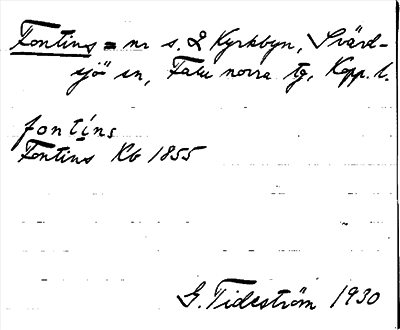 Fontins = nr s. 2 Kyrkbyn, Svärd-
sjö sn, Falu norra tg, Kopp. l.
fontíns
Fontins Kb 1855
G. Tideström 1930